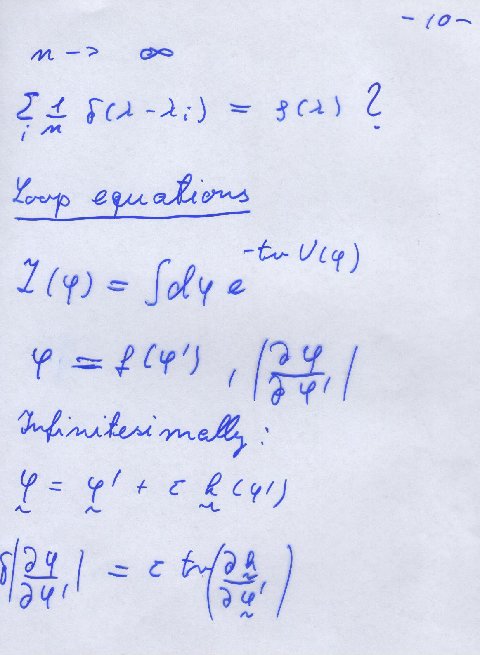 -10-
n -> ∞
Σ_i 1/n δ(λ-λ_i) = ρ(λ) ?
Loop equations
Z(φ) = ∫dφ e^{-tr V(φ)}
φ = f(φ'), |∂φ/∂φ'|
Infinitesimally:
φ = φ' + ε h(φ')
δ|∂φ/∂φ'| = ε tr(∂h/∂φ')